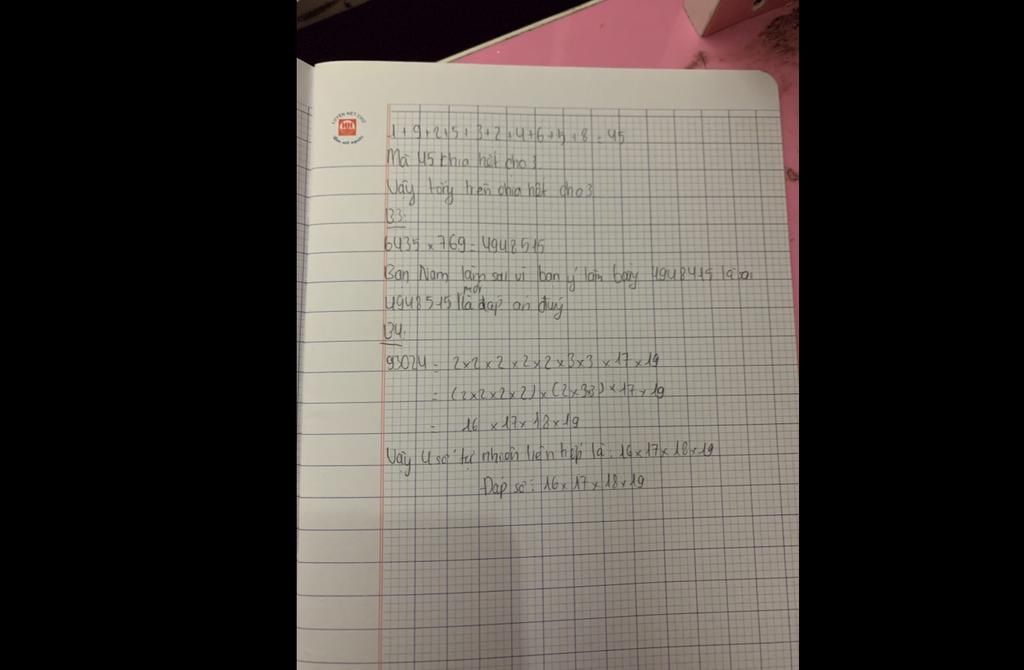 LUYỆN NÉT CHỮ
HH
1+9+2+5+3+2+4+6+5+8=45
Mà 45 chia hết cho 3
Vậy tổng trên chia hết cho 3
B3:
6435 × 769 = 4948515
Bạn Nam làm sai vì bạn ý làm bằng 4948415 là sai
4948515 mới là đáp án đúng
B4:
93024 = 2×2×2×2×2×3×3×17×19
= (2×2×2×2)×(2×33)×17×19
= 16×17×18×19
Vậy 4 số tự nhiên liên tiếp là: 16×17×18×19
Đáp số: 16×17×18×19